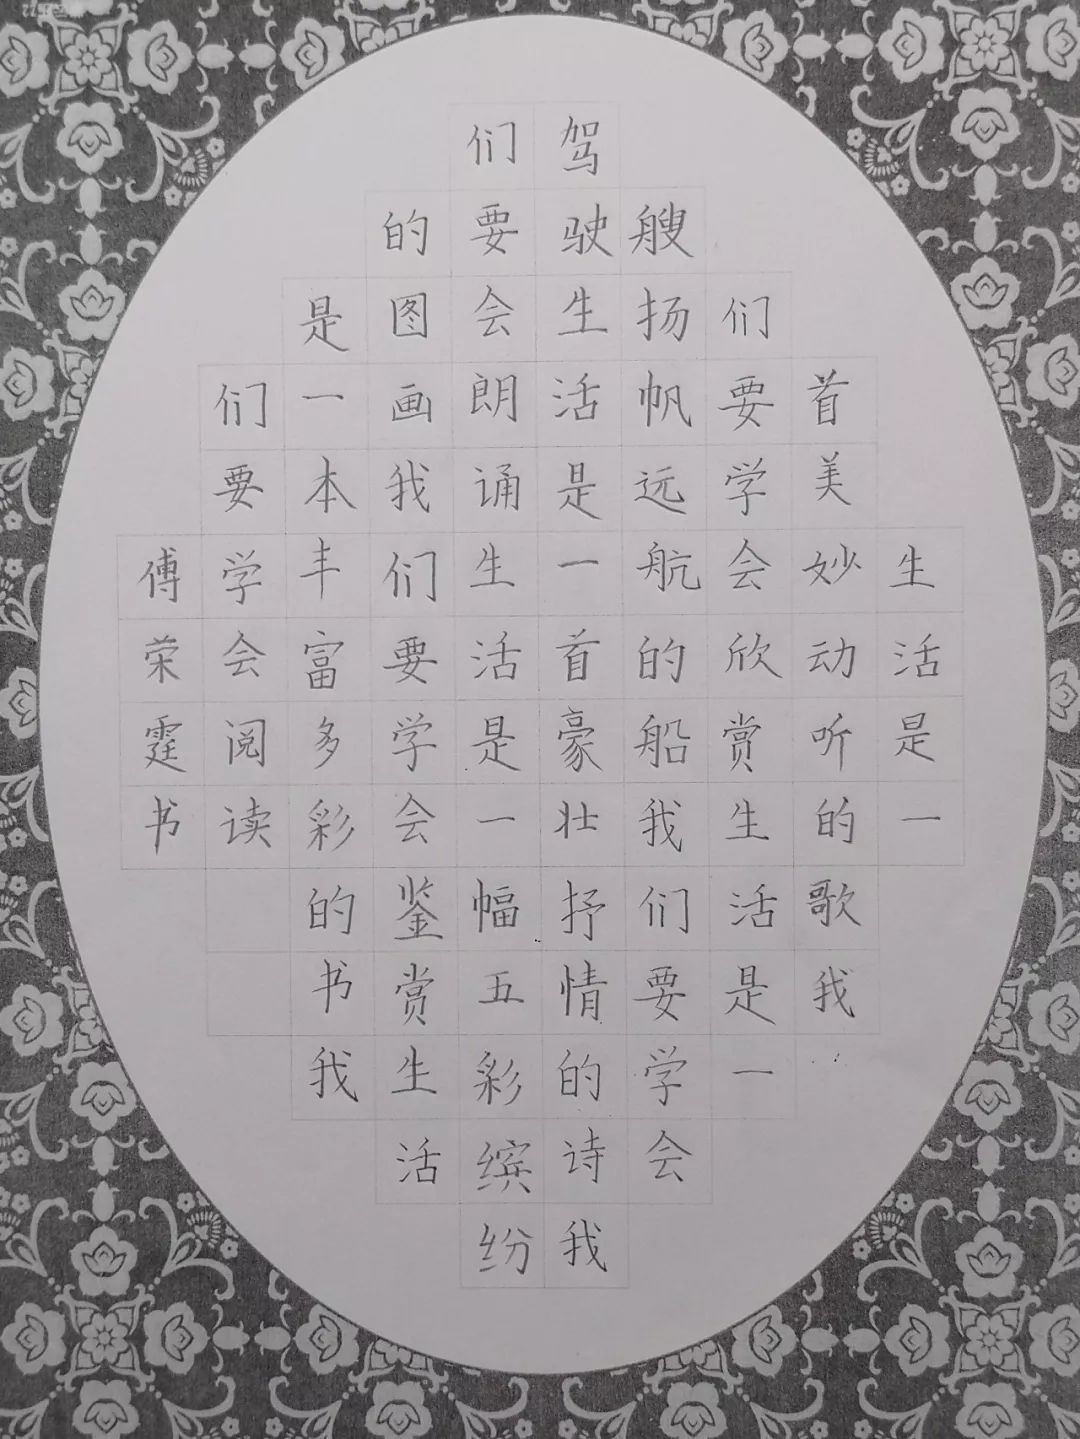 生活是一
首美妙动听的歌我
们要学会欣赏生活是一
艘扬帆远航的船我们要学会
驾驶生活是一首豪壮抒情的诗我
们要会朗诵生活是一幅五彩缤纷
的图画我们要学会鉴赏生活
是一本丰富多彩的书我
们要学会阅读
傅荣霆书